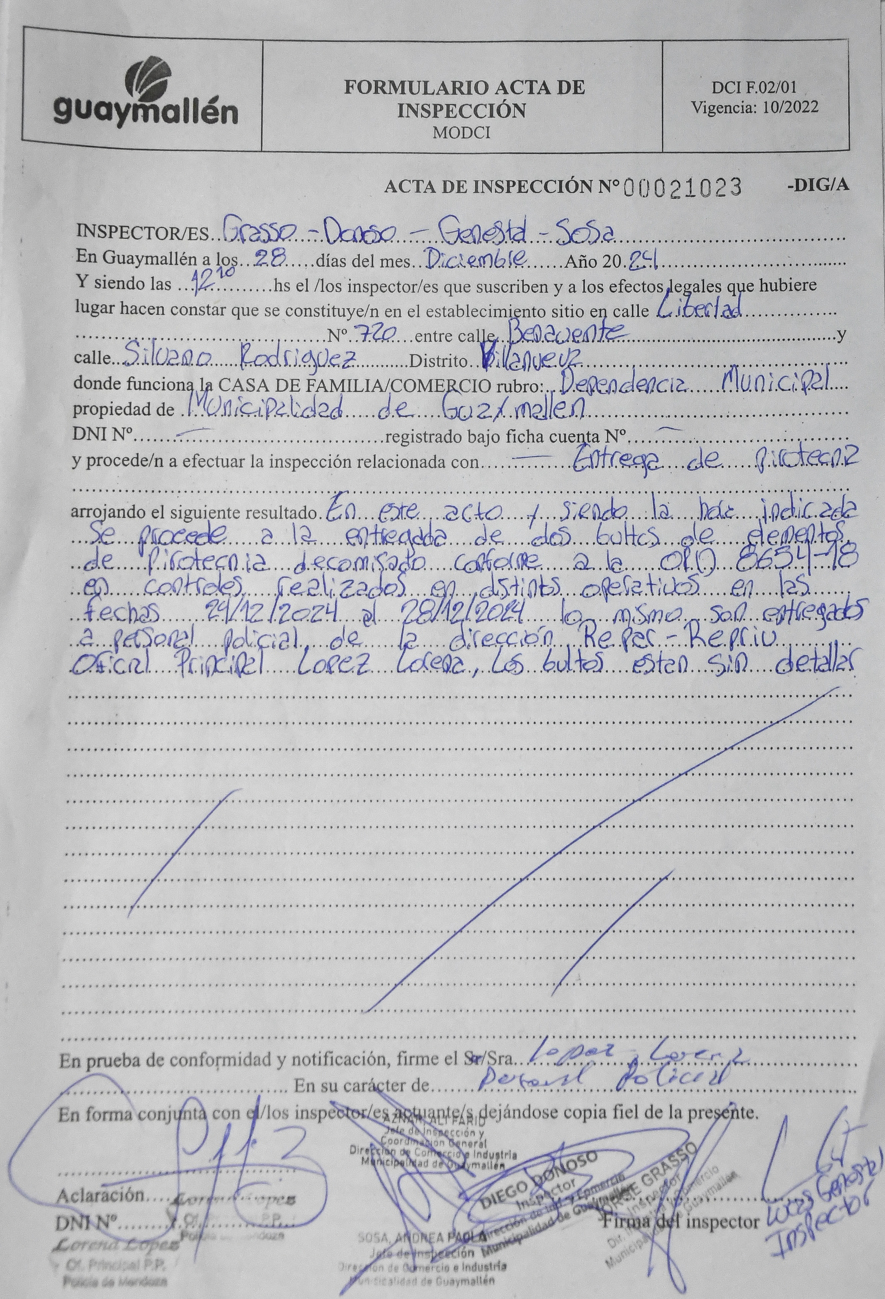 guaymallén
FORMULARIO ACTA DE
INSPECCIÓN
MODCI
DCI F.02/01
Vigencia: 10/2022
ACTA DE INSPECCIÓN N° 00021023 -DIG/A
INSPECTOR/ES Grasso - Donoso - Genestal - Sosa
En Guaymallén a los 28 días del mes Diciembre Año 20 24
Y siendo las 12 10 hs el /los inspector/es que suscriben y a los efectos legales que hubiere
lugar hacen constar que se constituye/n en el establecimiento sitio en calle Libertad
N° 720 entre calle Benavente y
calle Silvano Rodriguez Distrito Villanueva
donde funciona la CASA DE FAMILIA/COMERCIO rubro: Dependencia Municipal
propiedad de Municipalidad de Guaymallen
DNI N° registrado bajo ficha cuenta N°
y procede/n a efectuar la inspección relacionada con Entrega de pirotecnia
arrojando el siguiente resultado. En este acto y siendo la hora indicada
Se procede a la entregada de dos bultos de elementos
de pirotecnia decomisado conforme a la ORD 8654-18
en controles realizados en distintos operativos en las
fechas 24/12/2024 al 28/12/2024 lo mismo son entregados
a personal policial de la dirección Repar - Repriv
Oficial Principal Lopez Lorena, Los bultos estan sin detallar
En prueba de conformidad y notificación, firme el Sr/Sra. Lopez Lorena
En su carácter de Personal Policial
En forma conjunta con el/los inspector/es actuante/s dejándose copia fiel de la presente.
Jefe de Inspección y
Coordinación General
Dirección de Comercio e Industria
Municipalidad de Guaymallén
DIEGO DONOSO
Inspector
Dirección de Ind. y Comercio
Municipalidad de Guaymallén
JORGE GRASSO
Inspector
Municipalidad de Guaymallén
Aclaración Lorena Lopez
DNI N°
Firma del inspector
Lucas Genestal
Inspector
Lorena Lopez
Of. Principal P.P.
Policia de Mendoza
SOSA, ANDREA PAOLA
Jefe de Inspección
Dirección de Comercio e Industria
Municipalidad de Guaymallén